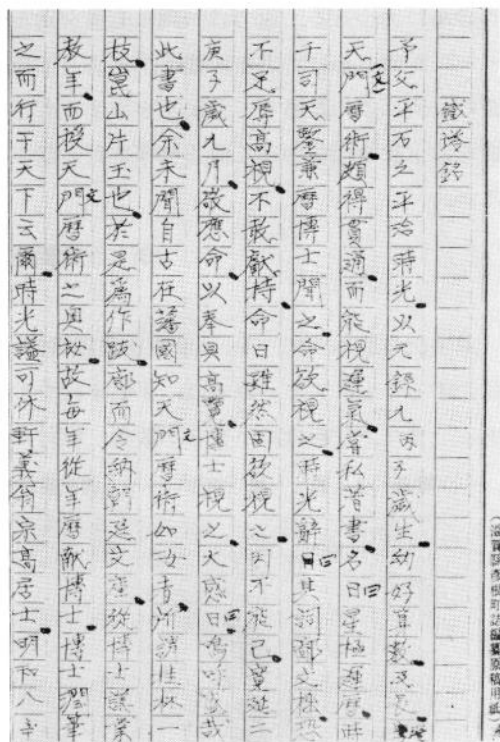 鐵塔銘
予父平石之平治時光以元録九丙子歳生幼好算数及長
天門(文)暦術頗得貫通而能視運氣嘗私著書名曰星極運暦時
千司天鑒兼暦博士聞之命欲視之時光辭曰其詞鄙文拙恐
不足辱高視不敢獻博士命曰雖然固欲視之因不能已寛延二
庚子歳九月敬應命以奉具高覽博士視之大感曰嗚呼盛哉
此書也余未聞自古在藩國知天門文暦術如女者所謂桂林一
枝崑山片玉也於是爲作跋
而令納
是文
從博士
業
教年而授天門文暦術之奥祕故毎年從年暦献博士博士潤筆
之而行于天下云爾時光諡可休軒義翁宗高居士明和八年